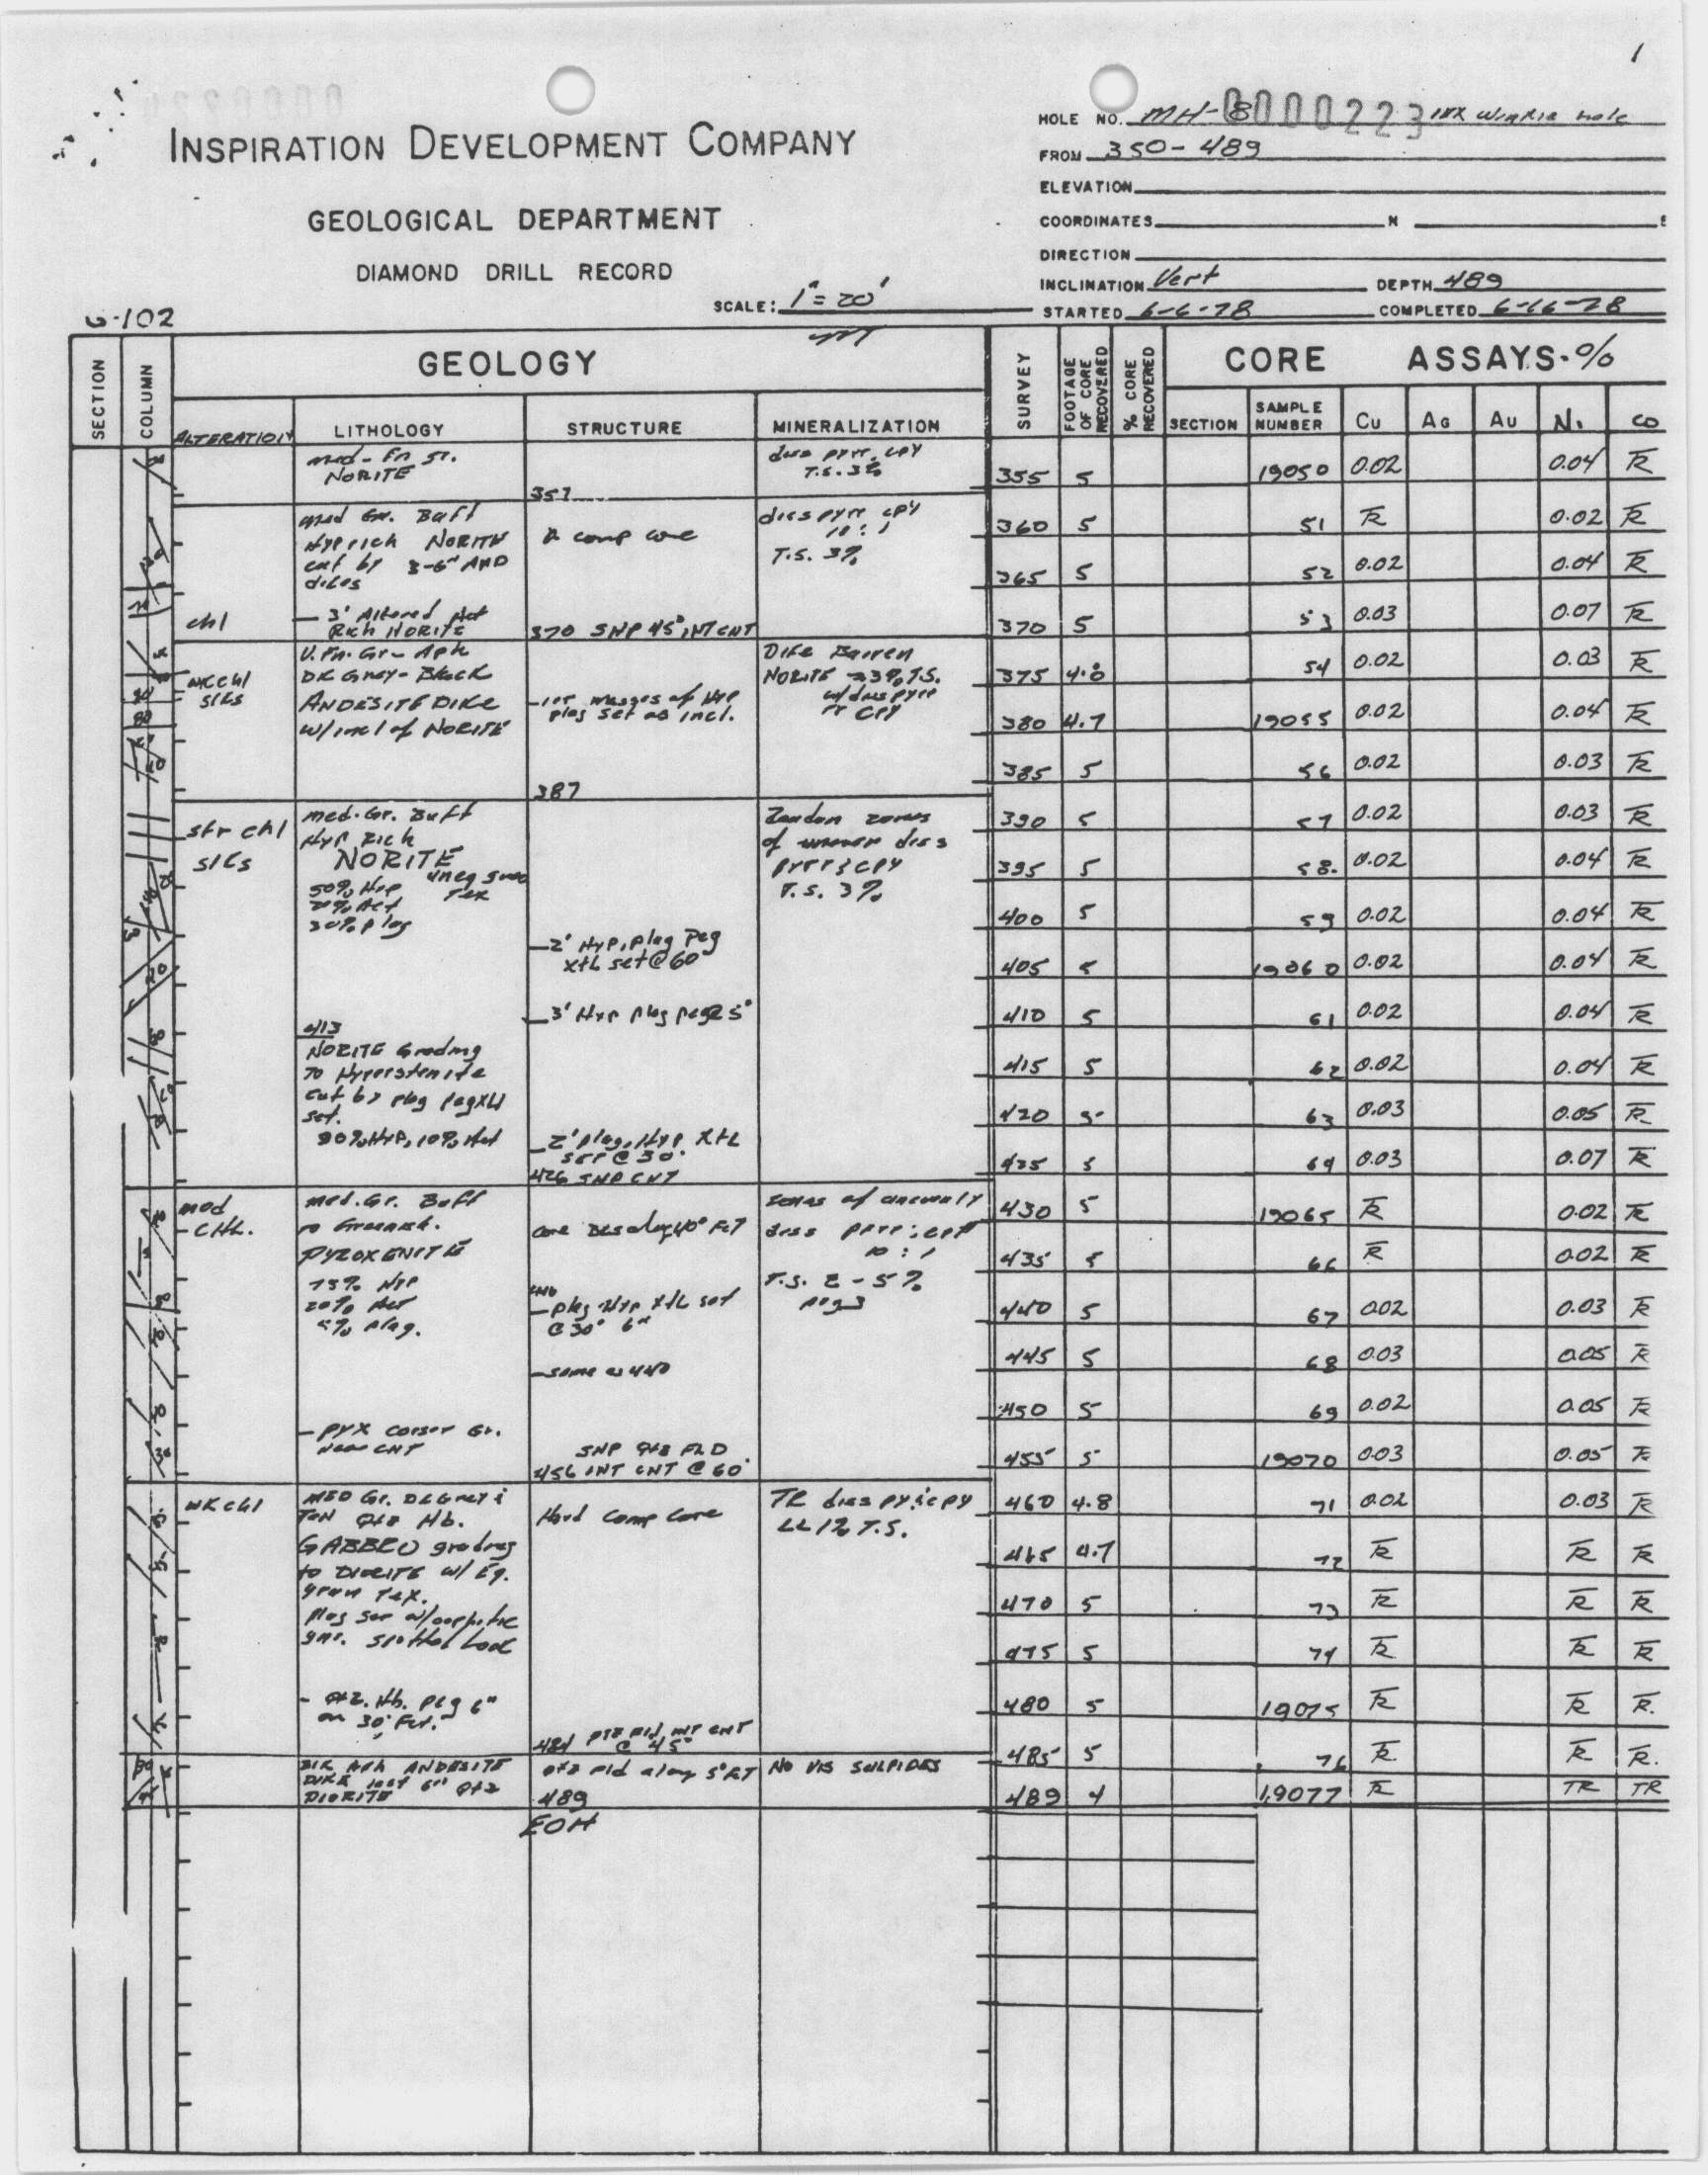 1
HOLE NO. MH-8 0000223 Winkie hole
INSPIRATION DEVELOPMENT COMPANY
FROM 350-489
ELEVATION
GEOLOGICAL DEPARTMENT
COORDINATES N E
DIRECTION
DIAMOND DRILL RECORD
INCLINATION Vert DEPTH 489
SCALE: 1"=20'
STARTED 6-6-78 COMPLETED 6-16-78
G-102
SECTION
COLUMN
GEOLOGY
SURVEY
FOOTAGE OF CORE RECOVERED
% CORE RECOVERED
CORE ASSAYS-%
ALTERATION LITHOLOGY STRUCTURE MINERALIZATION
SECTION SAMPLE NUMBER Cu AG AU Ni CO
med-Fn Gr.
NORITE
357
diss pyrr, cpy
T.S. 3%
355 5 19050 0.02 0.04 TR
med Gr. Buff
Hyp rich NORITE
cut by 3-6" AND
dikes
comp core
diss pyrr cpy
10:1
T.S. 3%
360 5 51 TR 0.02 TR
365 5 52 0.02 0.04 TR
chl
- 3' Altered Act
Rich NORITE
370 SHP 45° INT CNT
370 5 53 0.03 0.07 TR
WK chl
sils
V. Fn. Gr- Aph
DK Grey-Black
ANDESITE DIKE
w/incl of NORITE
plag set as incl.
Dike Barren
NORITE 3% T.S.
w/diss pyrr
cpy
375 4.8 54 0.02 0.03 TR
380 4.7 19055 0.02 0.04 TR
385 5 56 0.02 0.03 TR
387
str chl
sils
med. Gr. Buff
Hyp Rich
NORITE
50% Hyp
20% Act
30% plag
Random zones
of diss
pyrr & cpy
T.S. 3%
390 5 57 0.02 0.03 TR
395 5 58. 0.02 0.04 TR
400 5 59 0.02 0.04 TR
-2' Hyp, plag Peg
xtl set @ 60°
405 5 19060 0.02 0.04 TR
-3' Hyp plag peg
410 5 61 0.02 0.04 TR
413
NORITE Grading
To Hyperstenite
cut by plag peg xtl
set.
415 5 62 0.02 0.04 TR
420 5 63 0.03 0.05 TR
90% Hyp, 10% Act
-2' plag, Hyp xtl
set @ 30°
426 SHP CNT
425 5 64 0.03 0.07 TR
mod
-CHL.
med. Gr. Buff
to Greenish.
PYROXENITE
75% Hyp
20% Act
5% plag.
zones of unevenly
diss pyrr: cpy
10:1
T.S. 2-5%
430 5 19065 TR 0.02 TR
435 5 66 TR 0.02 TR
440
-plag Hyp xtl set
@ 30° 6"
440 5 67 0.02 0.03 TR
-same as 440
445 5 68 0.03 0.05 TR
450 5 69 0.02 0.05 TR
- pyx corser Gr.
near CNT
SHP qtz FLD
456 INT CNT @ 60°
455 5 19070 0.03 0.05 TR
WK chl
MED Gr. DK Grey &
Tan qtz Hb.
GABBRO grading
to DIORITE w/ Eq.
gran Tex.
Hard comp core
TR diss py & cpy
LL 1% T.S.
460 4.8 71 0.02 0.03 TR
465 4.7 72 TR TR TR
470 5 73 TR TR TR
475 5 74 TR TR TR
- qtz. Hb. peg 6"
on 30° Fct.
480 5 19075 TR TR TR.
484 qtz fld, INT CNT
@ 45°
485 5 76 TR TR TR.
BLK Aph ANDESITE
DIKE last 6" qtz
DIORITE
qtz fld along 5° FCT
NO VIS SULPIDES
489
489 4 19077 TR TR TR
EOH